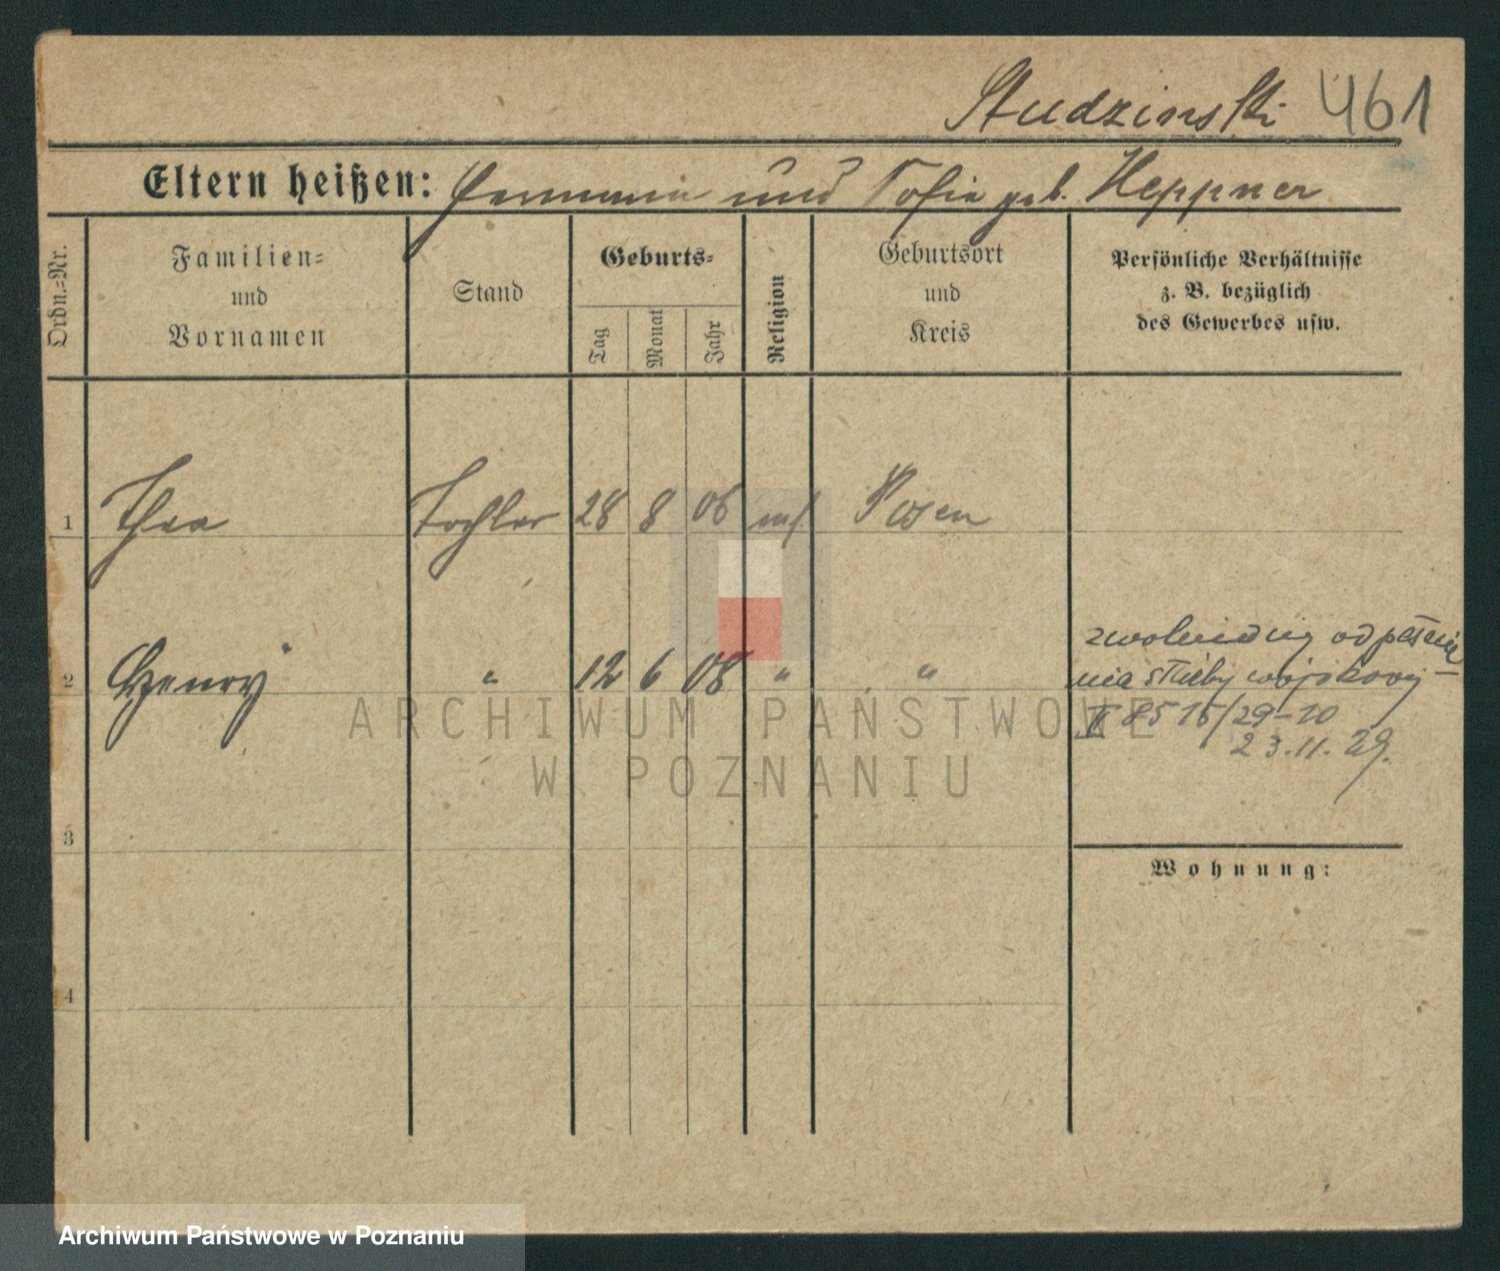 Studzinski 461
Eltern heißen: Hermann und Sofie geb. Heppner
Ordn.-Nr.
Familien-
und
Vornamen
Stand
Geburts-
Tag
Monat
Jahr
Religion
Geburtsort
und
Kreis
Persönliche Verhältnisse
z. B. bezüglich
des Gewerbes usw.
1 Thea Tochter 28 8 06 Posen
2 " 12 6 08 " "
od pełnie
nia służby wojskowej
II 8515/29-10
23.11.29.
3
Wohnung:
4
ARCHIWUM PAŃSTWOWE
W POZNANIU
Archiwum Państwowe w Poznaniu